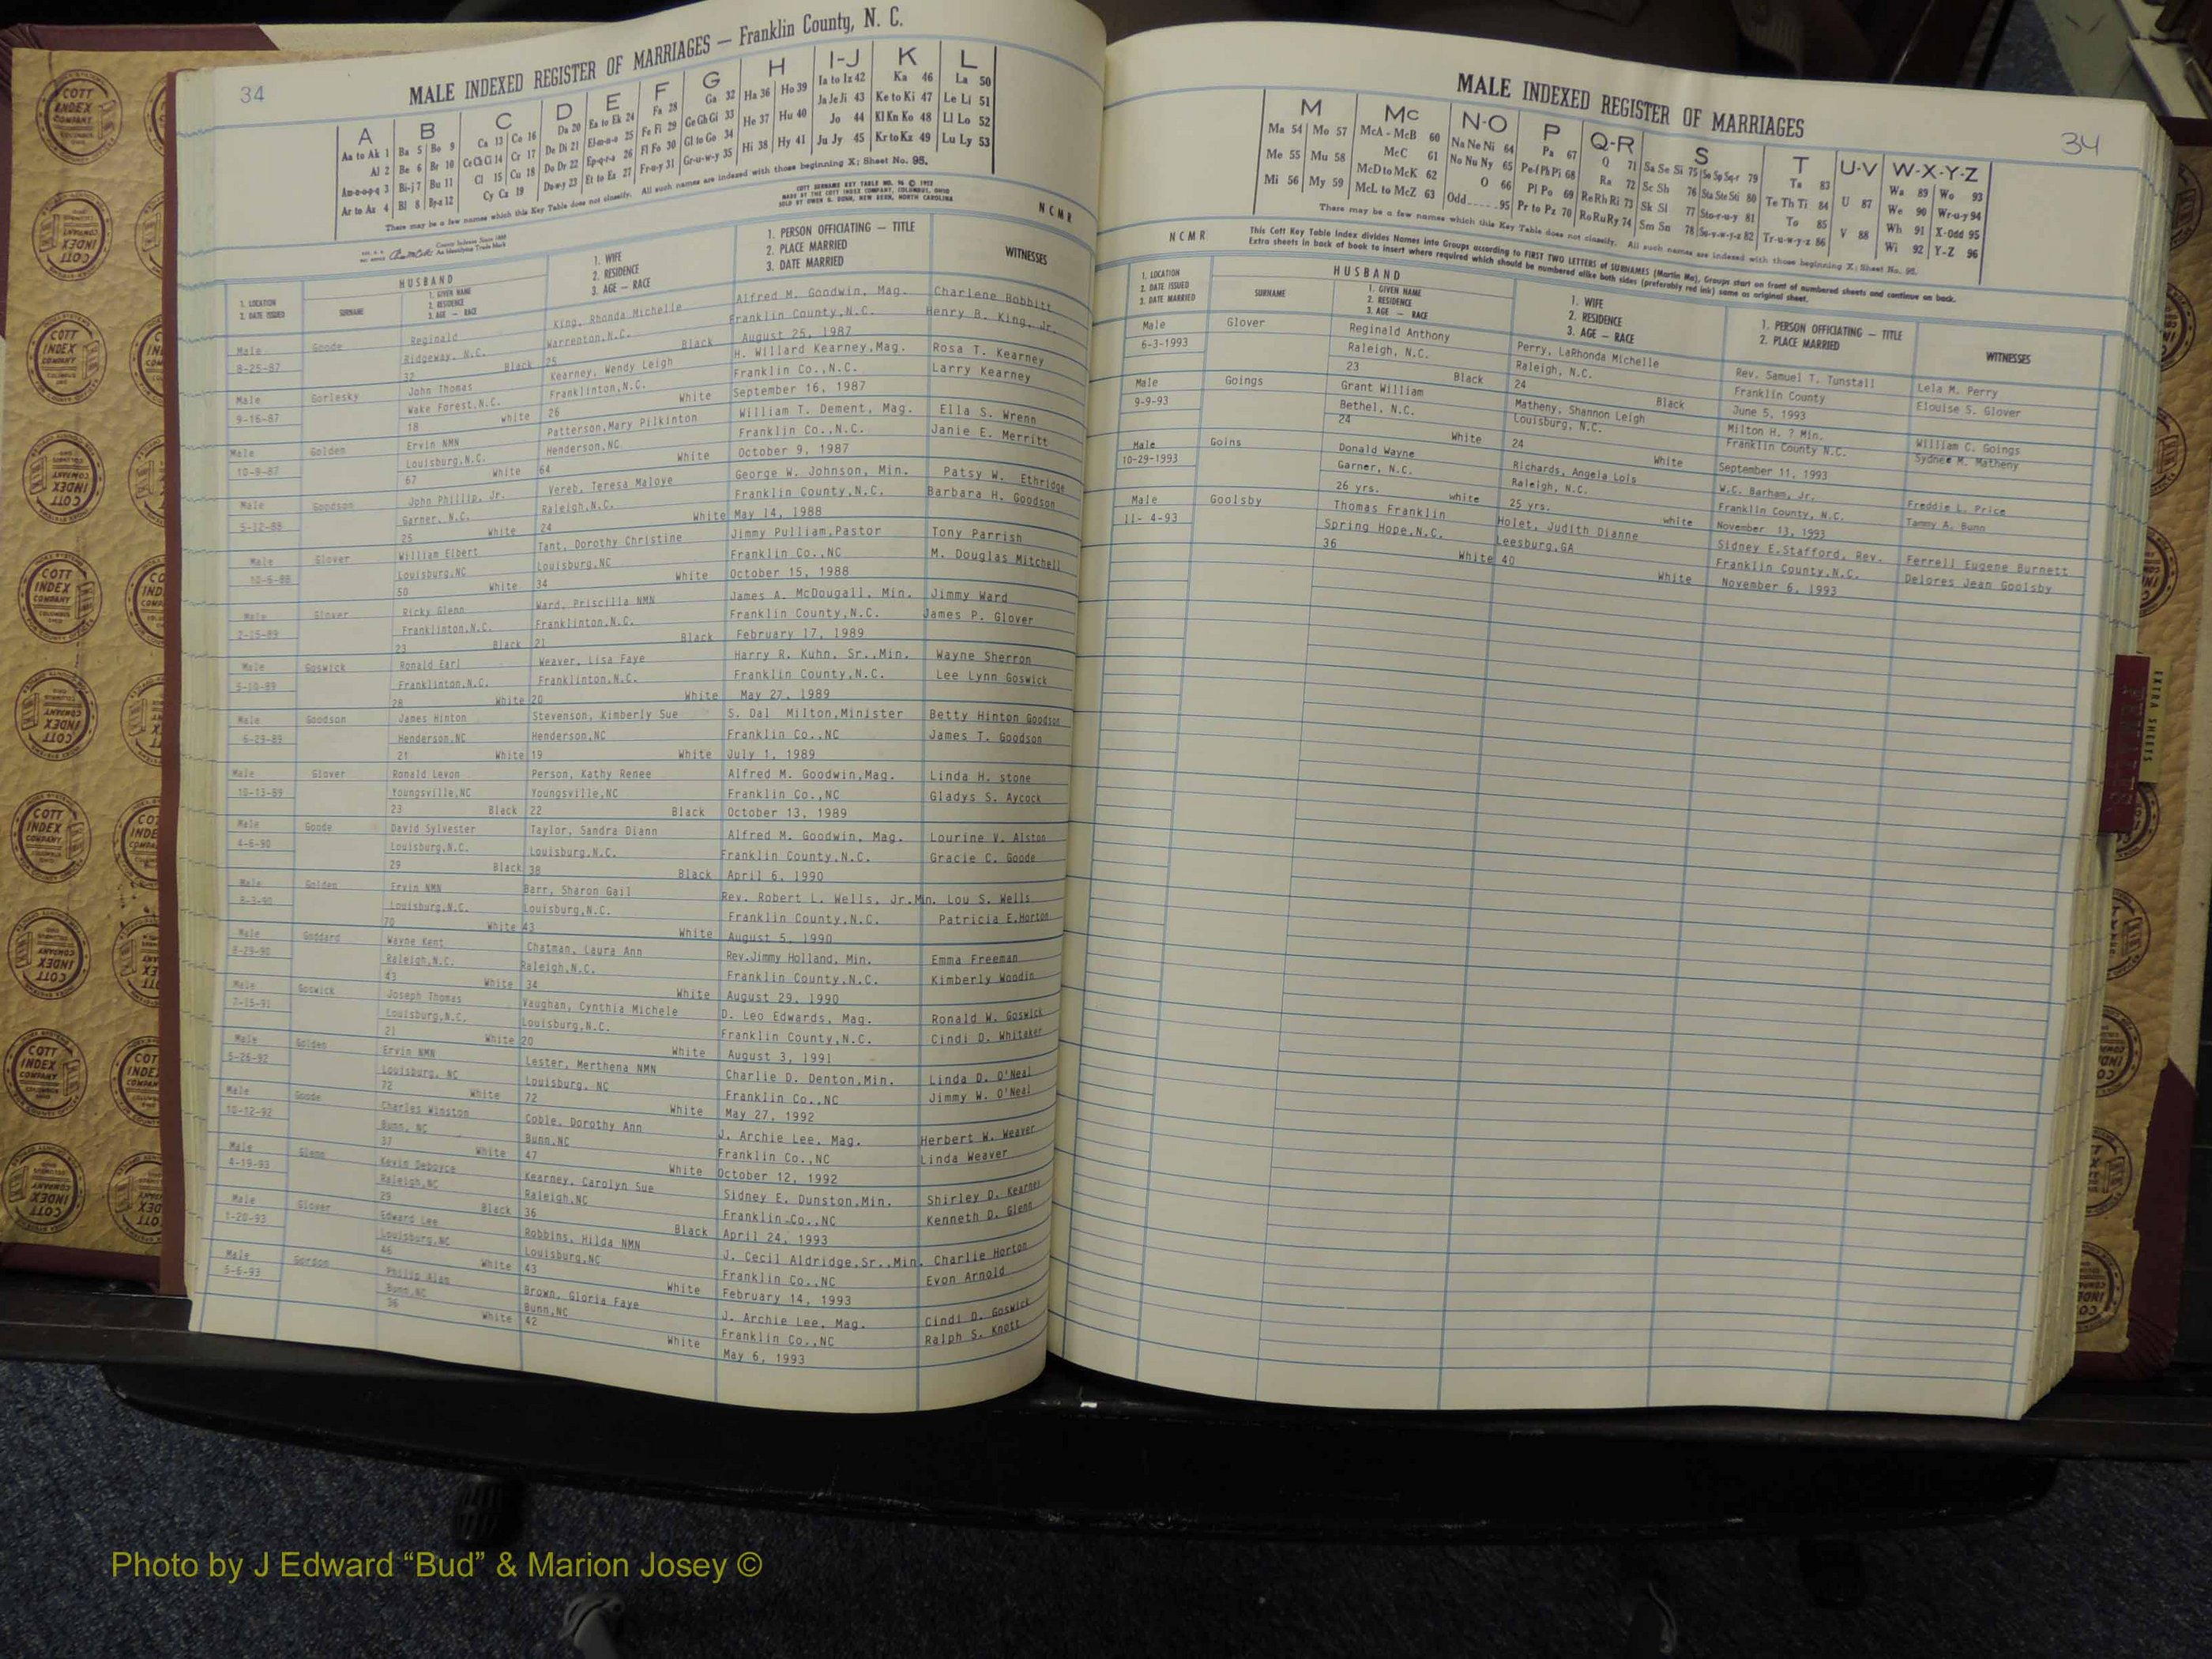 34
MALE INDEXED REGISTER OF MARRIAGES — Franklin County, N. C.
A B C D E F G H I-J K L
Aa to Ak 1 Ba 5 Bo 9 Ca 13 Co 16 Da 20 Ea to Ek 24 Fa 28 Ga 32 Ha 36 Ho 39 Ia to Iz 42 Ka 46 La 50
Al 2 Be 6 Br 10 Ce Ch Ci 14 Cr 17 De Di 21 El-m-n-o 25 Fe Fi 29 Ge Gh Gi 33 He 37 Hu 40 Ja Je Ji 43 Ke to Ki 47 Le Li 51
Am-n-o-p-q 3 Bi-j 7 Bu 11 Cl 15 Cu 18 Do Dr 22 Ep-q-r-s 26 Fl Fo 30 Gl to Go 34 Hi 38 Hy 41 Jo 44 Kl Kn Ko 48 Ll Lo 52
Ar to Az 4 Bl 8 By-z 12 Cy Cz 19 Du-w-y 23 Et to Ez 27 Fr-u-y 31 Gr-u-w-y 35 Ju Jy 45 Kr to Kz 49 Lu Ly 53
There may be a few names which this Key Table does not classify. All such names are indexed with those beginning X; Sheet No. 95.
COTT SURNAME KEY TABLE NO. 96 © 1952
MADE BY THE COTT INDEX COMPANY, COLUMBUS, OHIO
SOLD BY OWEN G. DUNN, NEW BERN, NORTH CAROLINA
NCMR
County Indexes Since 1888
An Identifying Trade Mark
1. LOCATION
2. DATE ISSUED
HUSBAND
SURNAME
1. GIVEN NAME
2. RESIDENCE
3. AGE — RACE
1. WIFE
2. RESIDENCE
3. AGE — RACE
1. PERSON OFFICIATING — TITLE
2. PLACE MARRIED
3. DATE MARRIED
WITNESSES
Male Goode Reginald King, Rhonda Michelle Alfred M. Goodwin, Mag. Charlene Bobbitt
8-25-87 Ridgeway, N.C. Warrenton,N.C. Franklin County,N.C. Henry B. King, Jr.
32 Black 25 Black August 25, 1987
Male Gorlesky John Thomas Kearney, Wendy Leigh H. Willard Kearney,Mag. Rosa T. Kearney
9-16-87 Wake Forest,N.C. Franklinton,N.C. Franklin Co.,N.C. Larry Kearney
18 White 26 White September 16, 1987
Male Golden Ervin NMN Patterson,Mary Pilkinton William T. Dement, Mag. Ella S. Wrenn
10-9-87 Louisburg,N.C. Henderson,NC Franklin Co.,N.C. Janie E. Merritt
67 White 64 White October 9, 1987
Male Goodson John Phillip, Jr. Vereb, Teresa Maloye George W. Johnson, Min. Patsy W. Ethridge
5-12-88 Garner, N.C. Raleigh,N.C. Franklin County,N.C. Barbara H. Goodson
25 White 24 White May 14, 1988
Male Glover William Elbert Tant, Dorothy Christine Jimmy Pulliam,Pastor Tony Parrish
10-6-88 Louisburg,NC Louisburg,NC Franklin Co.,NC M. Douglas Mitchell
50 White 34 White October 15, 1988
Male Glover Ricky Glenn Ward, Priscilla NMN James A. McDougall, Min. Jimmy Ward
2-15-89 Franklinton,N.C. Franklinton,N.C. Franklin County,N.C. James P. Glover
23 Black 21 Black February 17, 1989
Male Goswick Ronald Earl Weaver, Lisa Faye Harry R. Kuhn, Sr.,Min. Wayne Sherron
5-10-89 Franklinton,N.C. Franklinton,N.C. Franklin County,N.C. Lee Lynn Goswick
28 White 20 White May 27, 1989
Male Goodson James Hinton Stevenson, Kimberly Sue S. Dal Milton,Minister Betty Hinton Goodson
6-29-89 Henderson,NC Henderson,NC Franklin Co.,NC James T. Goodson
21 White 19 White July 1, 1989
Male Glover Ronald Levon Person, Kathy Renee Alfred M. Goodwin,Mag. Linda H. stone
10-13-89 Youngsville,NC Youngsville,NC Franklin Co.,NC Gladys S. Aycock
23 Black 22 Black October 13, 1989
Male Goode David Sylvester Taylor, Sandra Diann Alfred M. Goodwin, Mag. Lourine V. Alston
4-6-90 Louisburg,N.C. Louisburg,N.C. Franklin County,N.C. Gracie C. Goode
29 Black 38 Black April 6, 1990
Male Golden Ervin NMN Barr, Sharon Gail Rev. Robert L. Wells, Jr.Min. Lou S. Wells
8-3-90 Louisburg,N.C. Louisburg,N.C. Franklin County,N.C. Patricia E.Horton
70 White 43 White August 5, 1990
Male Goddard Wayne Kent Chatman, Laura Ann Rev.Jimmy Holland, Min. Emma Freeman
8-29-90 Raleigh,N.C. Raleigh,N.C. Franklin County,N.C. Kimberly Woodin
43 White 34 White August 29, 1990
Male Goswick Joseph Thomas Vaughan, Cynthia Michele D. Leo Edwards, Mag. Ronald W. Goswick
7-15-91 Louisburg,N.C. Louisburg,N.C. Franklin County,N.C. Cindi D. Whitaker
21 White 20 White August 3, 1991
Male Golden Ervin NMN Lester, Merthena NMN Charlie D. Denton,Min. Linda D. O'Neal
5-26-92 Louisburg, NC Louisburg, NC Franklin Co.,NC Jimmy W. O'Neal
72 White 72 White May 27, 1992
Male Goode Charles Winston Coble, Dorothy Ann J. Archie Lee, Mag. Herbert W. Weaver
10-12-92 Bunn, NC Bunn,NC Franklin Co.,NC Linda Weaver
37 White 47 White October 12, 1992
Male Glenn Kevin Deboyce Kearney, Carolyn Sue Sidney E. Dunston,Min. Shirley D. Kearney
4-19-93 Raleigh,NC Raleigh,NC Franklin Co.,NC Kenneth D. Glenn
29 Black 36 Black April 24, 1993
Male Glover Edward Lee Robbins, Hilda NMN J. Cecil Aldridge,Sr.,Min. Charlie Horton
1-20-93 Louisburg,NC Louisburg,NC Franklin Co.,NC Evon Arnold
46 White 43 White February 14, 1993
Male Gordon Philip Alan Brown, Gloria Faye J. Archie Lee, Mag. Cindi D. Goswick
5-6-93 Bunn,NC Bunn,NC Franklin Co.,NC Ralph S. Knott
36 White 42 White May 6, 1993
MALE INDEXED REGISTER OF MARRIAGES
34
M Mc N-O P Q-R S T U-V W-X-Y-Z
Ma 54 Mo 57 McA - McB 60 Na Ne Ni 64 Pa 67 Q 71 Sa Se Si 75 So Sp Sq-r 79 Ta 83 U 87 Wa 89 Wo 93
Me 55 Mu 58 McC 61 No Nu Ny 65 Pe-f Ph Pi 68 Ra 72 Sc Sh 76 Sta Ste Sti 80 Te Th Ti 84 V 88 We 90 Wr-u-y 94
Mi 56 My 59 McD to McK 62 O 66 Pl Po 69 Re Rh Ri 73 Sk Sl 77 Sto-r-u-y 81 To 85 Wh 91 X-Odd 95
McL to McZ 63 Odd 95 Pr to Pz 70 Ro Ru Ry 74 Sm Sn 78 Su-v-w-y-z 82 Tr-u-w-y-z 86 Wi 92 Y-Z 96
There may be a few names which this Key Table does not classify. All such names are indexed with those beginning X; Sheet No. 95.
NCMR
This Cott Key Table Index divides Names into Groups according to FIRST TWO LETTERS of SURNAMES (Martin Ma), Groups start on front of numbered sheets and continue on back.
Extra sheets in back of book to insert where required which should be numbered alike both sides (preferably red ink) same as original sheet.
1. LOCATION
2. DATE ISSUED
3. DATE MARRIED
HUSBAND
SURNAME
1. GIVEN NAME
2. RESIDENCE
3. AGE — RACE
1. WIFE
2. RESIDENCE
3. AGE — RACE
1. PERSON OFFICIATING — TITLE
2. PLACE MARRIED
WITNESSES
Male Glover Reginald Anthony Perry, LaRhonda Michelle Rev. Samuel T. Tunstall Lela M. Perry
6-3-1993 Raleigh, N.C. Raleigh, N.C. Franklin County Elouise S. Glover
23 Black 24 Black June 5, 1993
Male Goings Grant William Matheny, Shannon Leigh Milton H. ? Min. William C. Goings
9-9-93 Bethel, N.C. Louisburg, N.C. Franklin County N.C. Sydnee M. Matheny
24 White 24 White September 11, 1993
Male Goins Donald Wayne Richards, Angela Lois W.C. Barham, Jr. Freddie L. Price
10-29-1993 Garner, N.C. Raleigh, N.C. Franklin County, N.C. Tammy A. Bunn
26 yrs. white 25 yrs. white November 13, 1993
Male Goolsby Thomas Franklin Holet, Judith Dianne Sidney E.Stafford, Rev. Ferrell Eugene Burnett
11- 4-93 Spring Hope,N.C. Leesburg,GA Franklin County,N.C. Delores Jean Goolsby
36 White 40 White November 6, 1993
EXTRA SHEETS
COTT INDEX COMPANY
COLUMBUS OHIO
Photo by J Edward “Bud” & Marion Josey ©